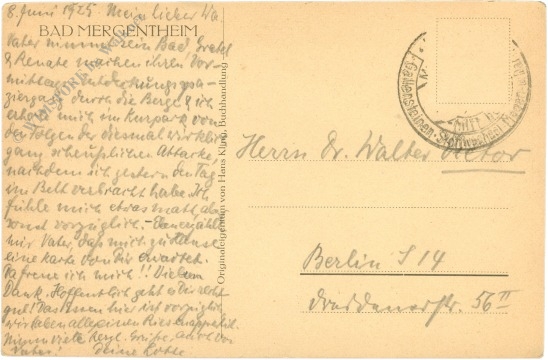 8. Juni 1925. Mein lieber Wa
BAD MERGENTHEIM
Vater nimmt sein Bad, Gretel
& Renate machen ihren Vor-
mittags-Entdeckungsspa-
ziergang durch die Berge & ich
erhole mich im Kurpark von
den Folgen der diesmal wirklich
ganz scheusslichen Attacke,
nachdem ich gestern den Tag
im Bett verbracht habe. Ich
fühle mich etwas matt, aber
sonst vorzüglich. - Eben erzählt
mir Vater, dass mich zu Hause
eine Karte von Dir erwartet.
Da freue ich mich!! Vielen
Dank. Hoffentlich geht es Dir recht
gut! Das Essen hier ist vorzüglich,
wir haben alle einen Riesenappetit.
Nimm viele herzl. Grüße, auch von
Vater! Deine Lotte
Originaleigentum von Hans Kling, Buchhandlung
Gallensteinen
Herrn Dr. Walter Victor
Berlin S 14
Dresdenerstr. 56 II